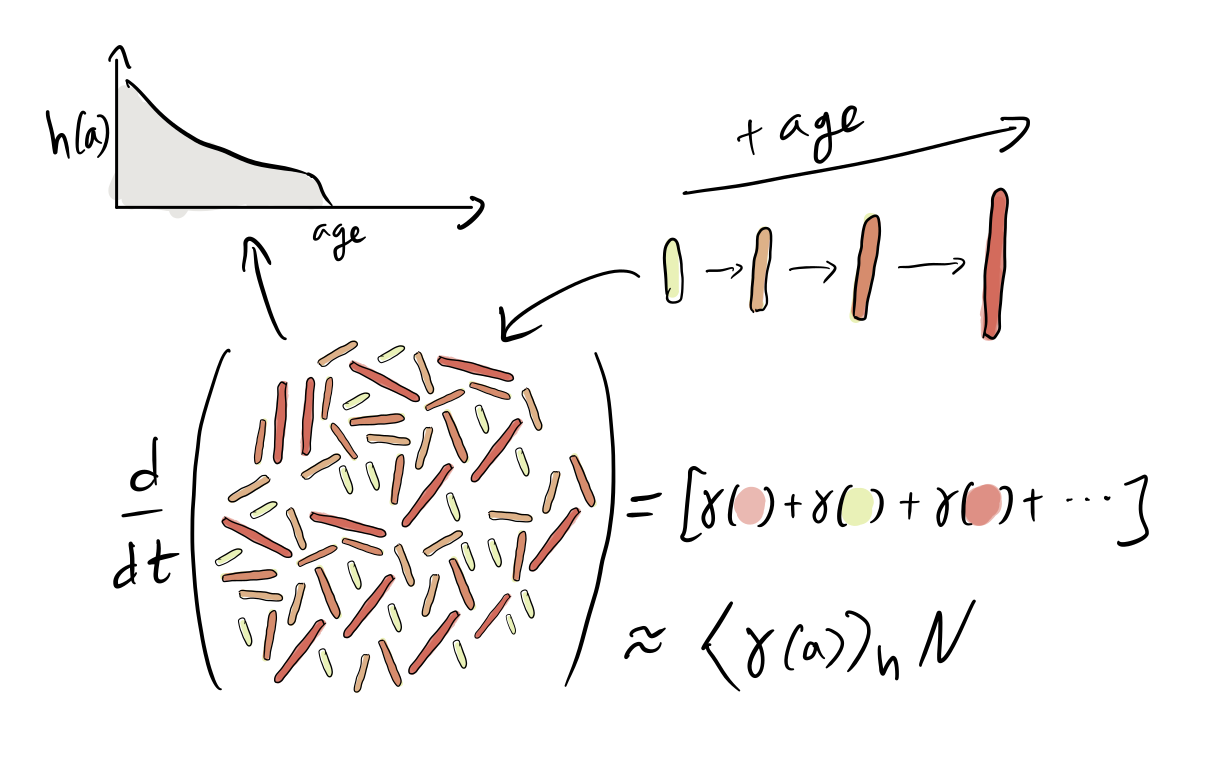 h(a)
age
+ age
d/dt ( ) = [γ( ) + γ( ) + γ( ) + ⋯ ]
≈ ⟨γ(a)⟩ₕ N